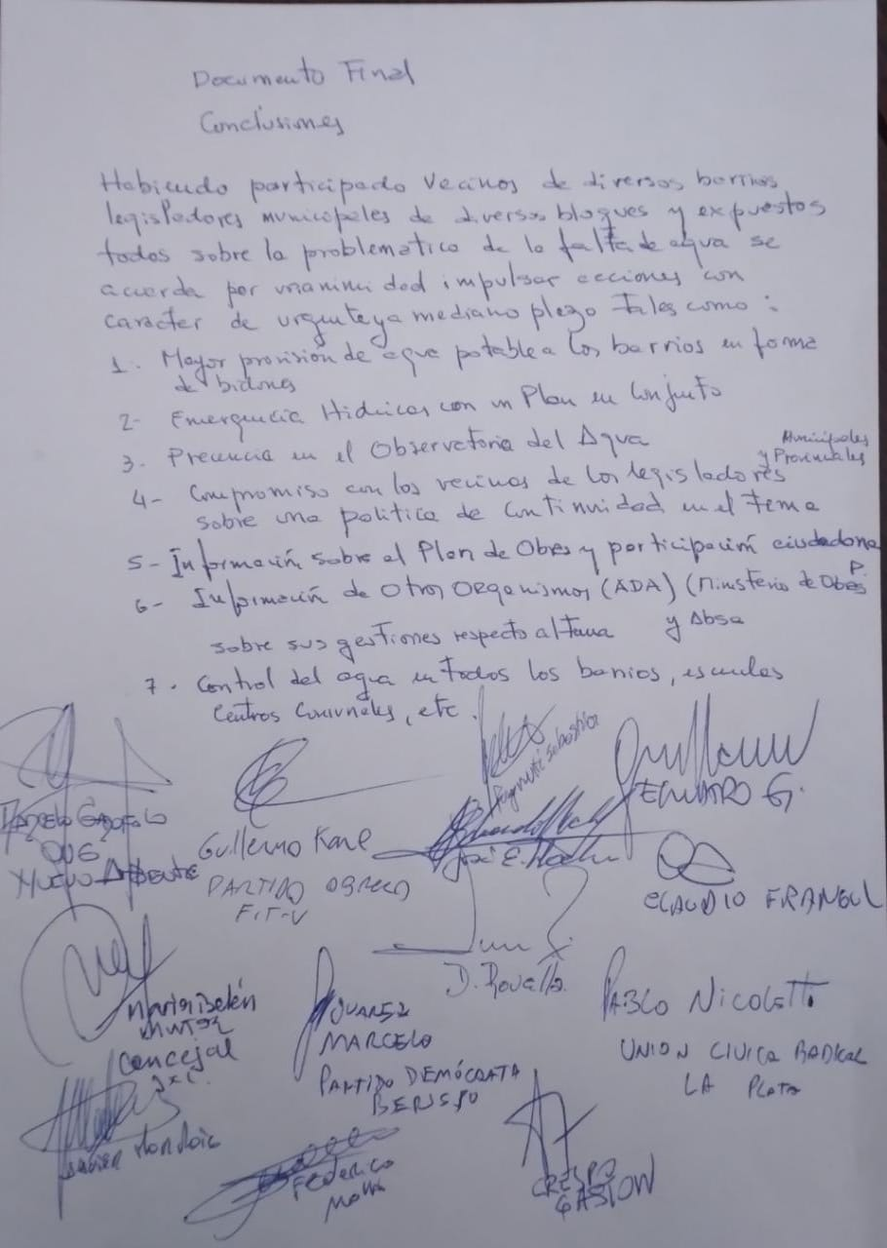 Documento Final
Conclusiones
Habiendo participado vecinos de diversos barrios
legisladores municipales de diversos bloques y expuestos
todos sobre la problematica de la falta de agua se
acuerda por unanimidad impulsar acciones con
caracter de urgente y a mediano plazo tales como :
1. Mayor provisión de agua potable a los barrios en forma
de bidones
2- Emergencia Hidricas con un Plan en Conjunto
3. Precencia en el Observatorio del Agua
Municipales
y Provinciales
4- Compromiso con los vecinos de los legisladores
sobre una politica de Continuidad en el tema
5- Información sobre el Plan de Obras y participación ciudadana
6- Información de Otros Organismos (ADA) (Ministerio de Obras P.
sobre sus gestiones respecto al tema y Absa
7. Control del agua en todos los barrios, escuelas
Centros Comunales, etc.
ONG
NUEVO AMBIENTE
Guillermo Kane
PARTIDO OBRERO
FIT-U
Sebastian
José E.
EDUARDO G.
CLAUDIO FRANGUL
Maria Belén
Muñoz
Concejal
JxC.
D. Rovella
JUAREZ
MARCELO
PARTIDO DEMÓCRATA
BERISSO
PABLO NICOLETTI
UNION CIVICA RADICAL
LA PLATA
Javier
Federico
CRESPO
GASTON